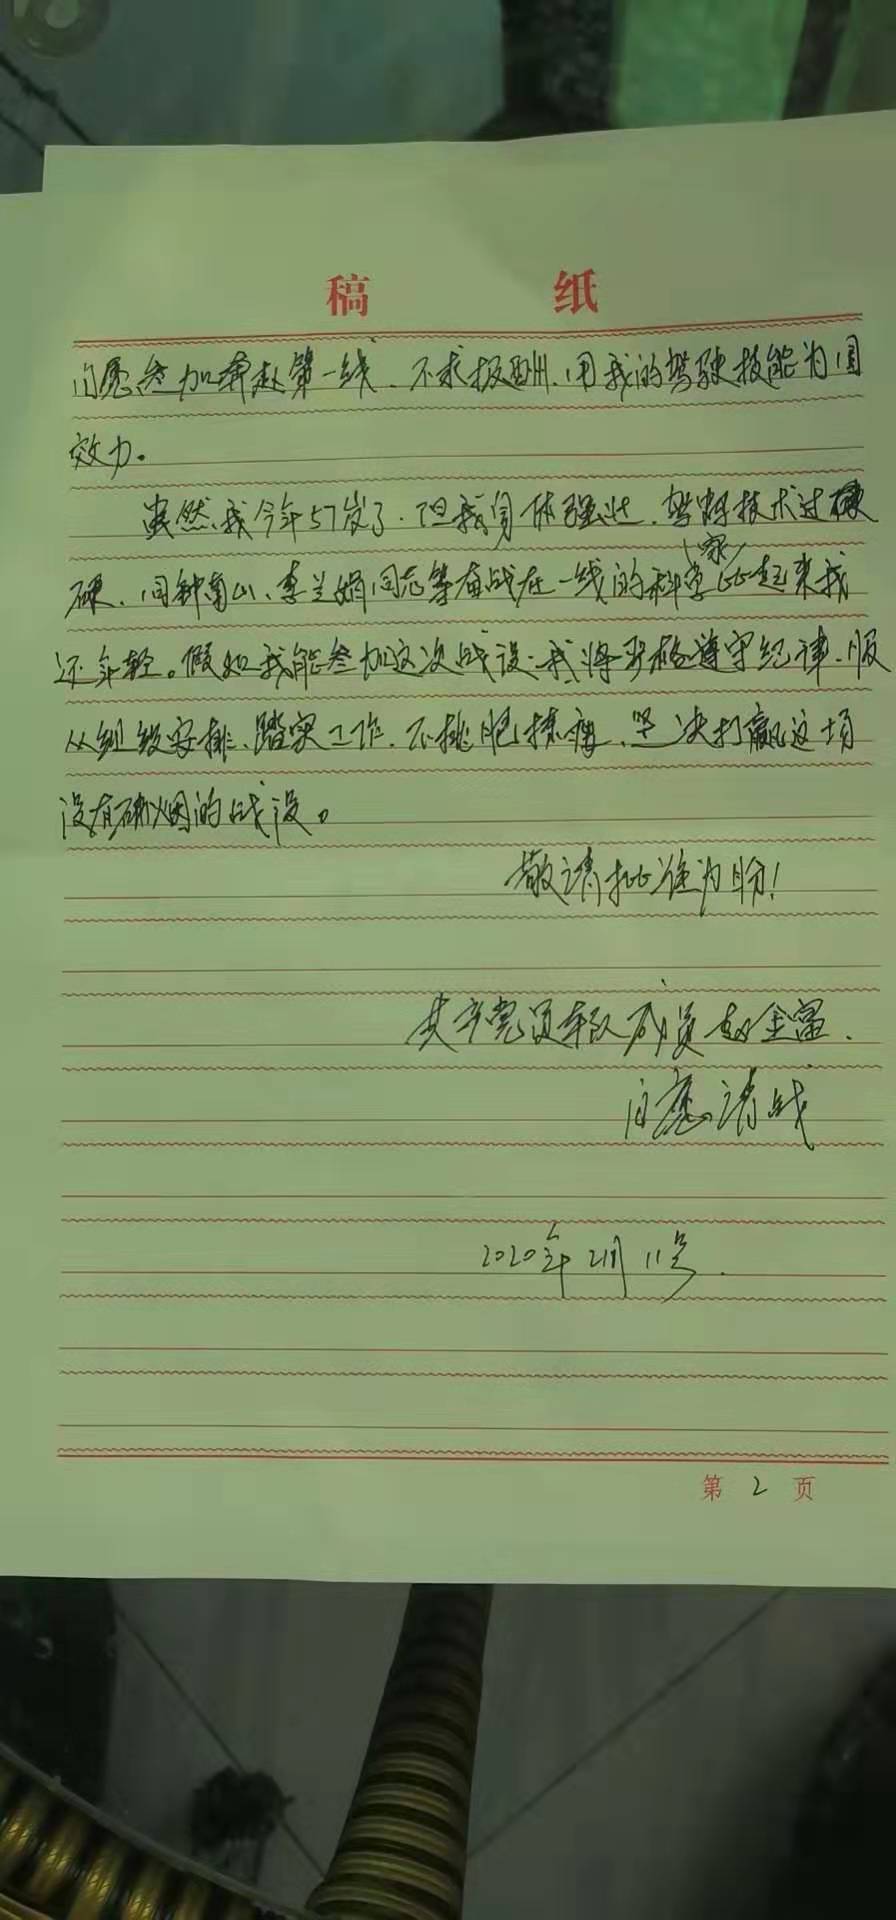 稿 纸
自愿叁加奔赴第一线、不求报酬、用我的驾驶技能为国
效力。
虽然我今年57岁了、但我身体强壮、驾驶技术过
硬、同钟南山、李兰娟同志等奋战在一线的科学家比起来我
还年轻。假如我能叁加这次战役、我将严格遵守纪律、服
从组织安排、踏实工作、不挑肥拣瘦、坚决打赢这场
没有硝烟的战役。
敬请批准为盼！
共产党员车队成员赵金富、
自愿请战
2020年2月11号.
第 2 页